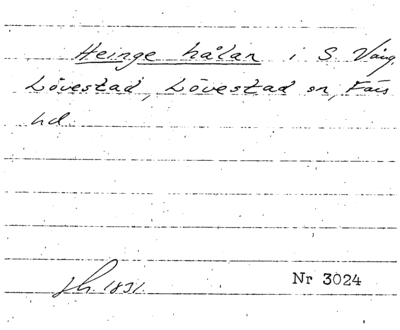 Heinge hålan i S. Vång,
Lövestad, Lövestad sn, Färs
hd.
1831.
Nr 3024